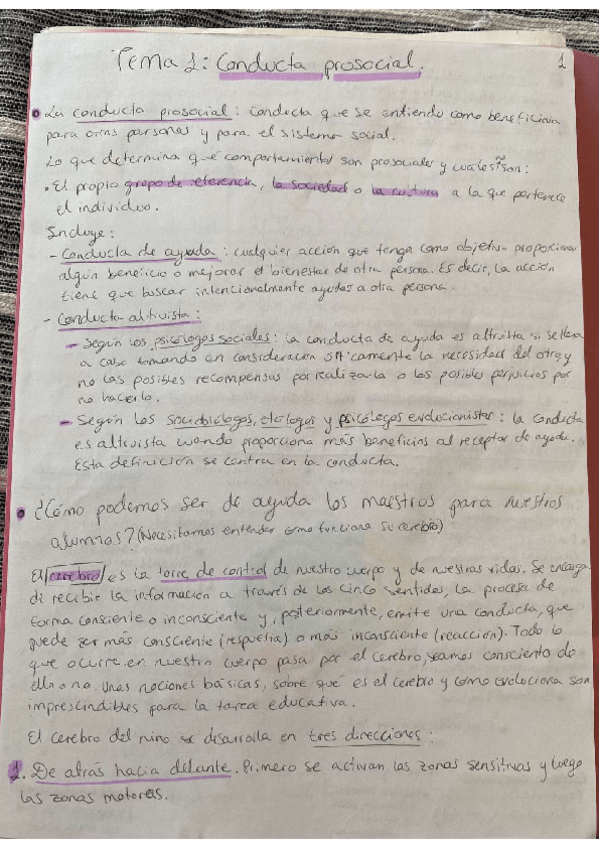 Tema 1: Conducta prosocial.
1
La conducta prosocial: conducta que se entiende como beneficiosa
para otras personas y para el sistema social.
Lo que determina qué comportamientos son prosociales y cuales no son:
• El propio grupo de referencia, la sociedad o la cultura a la que pertenece
el individuo.
Incluye:
- Conducta de ayuda: cualquier acción que tenga como objetivo proporcionar
algún beneficio o mejorar el bienestar de otra persona. Es decir, la acción
tiene que buscar intencionalmente ayudar a otra persona.
- Conducta altruista:
- Según los psicólogos sociales: la conducta de ayuda es altruista si se lleva
a cabo tomando en consideración únicamente la necesidad del otro y
no las posibles recompensas por realizarla o los posibles perjuicios por
no hacerlo.
- Según los sociobiólogos, etólogos y psicólogos evolucionistas: la conducta
es altruista cuando proporciona más beneficios al receptor de ayuda.
Esta definición se centra en la conducta.
• ¿Cómo podemos ser de ayuda los maestros para nuestros
alumnos? (Necesitamos entender como funciona su cerebro)
El cerebro es la torre de control de nuestro cuerpo y de nuestras vidas. Se encarga
de recibir la información a través de los cinco sentidos, la procesa de
forma consciente o inconsciente y, posteriormente, emite una conducta, que
puede ser más consciente (respuesta) o más inconsciente (reacción). Todo lo
que ocurre en nuestro cuerpo pasa por el cerebro, seamos consciente de
ello o no. Unas nociones básicas, sobre qué es el cerebro y cómo evoluciona son
imprescindibles para la tarea educativa.
El cerebro del niño se desarrolla en tres direcciones:
1. De atrás hacia delante. Primero se activan las zonas sensitivas y luego
las zonas motoras.